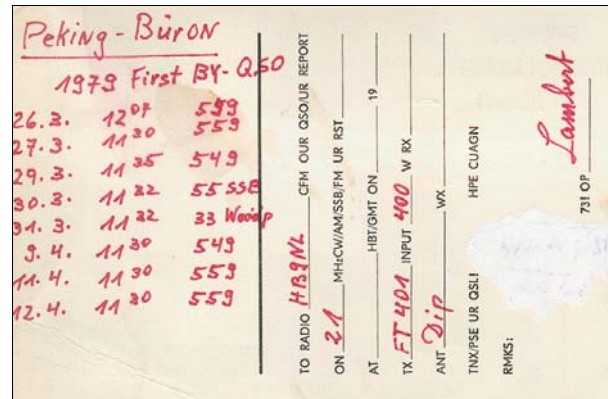 Peking - Büron
1979 First BY-QSO
26.3. 12 07 559
27.3. 11 30 559
29.3. 11 35 549
30.3. 11 32 55 SSB
31.3. 11 32 33
9.4. 11 30 549
11.4. 11 30 559
12.4. 11 30 559
TO RADIO HB9NL CFM OUR QSO/UR REPORT
ON 21 MHz CW/AM/SSB/FM UR RST
AT HBT/GMT ON 19
TX FT 401 INPUT 400 W RX
ANT Dip WX
TNX/PSE UR QSL! HPE CUAGN
RMKS: 73! OP Lambert